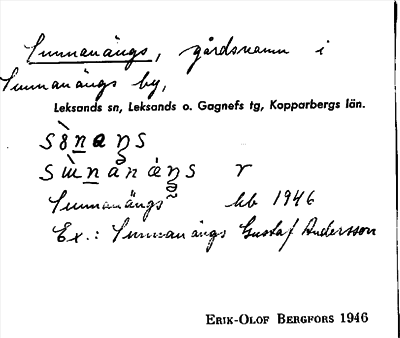 Sunnanängs, gårdsnamn i
Sunnanängs by,
Leksands sn, Leksands o. Gagnefs tg, Kopparbergs län.
Sunnanängs kb 1946
Ex.: Sunnanängs Gustaf Andersson
ERIK-OLOF BERGFORS 1946